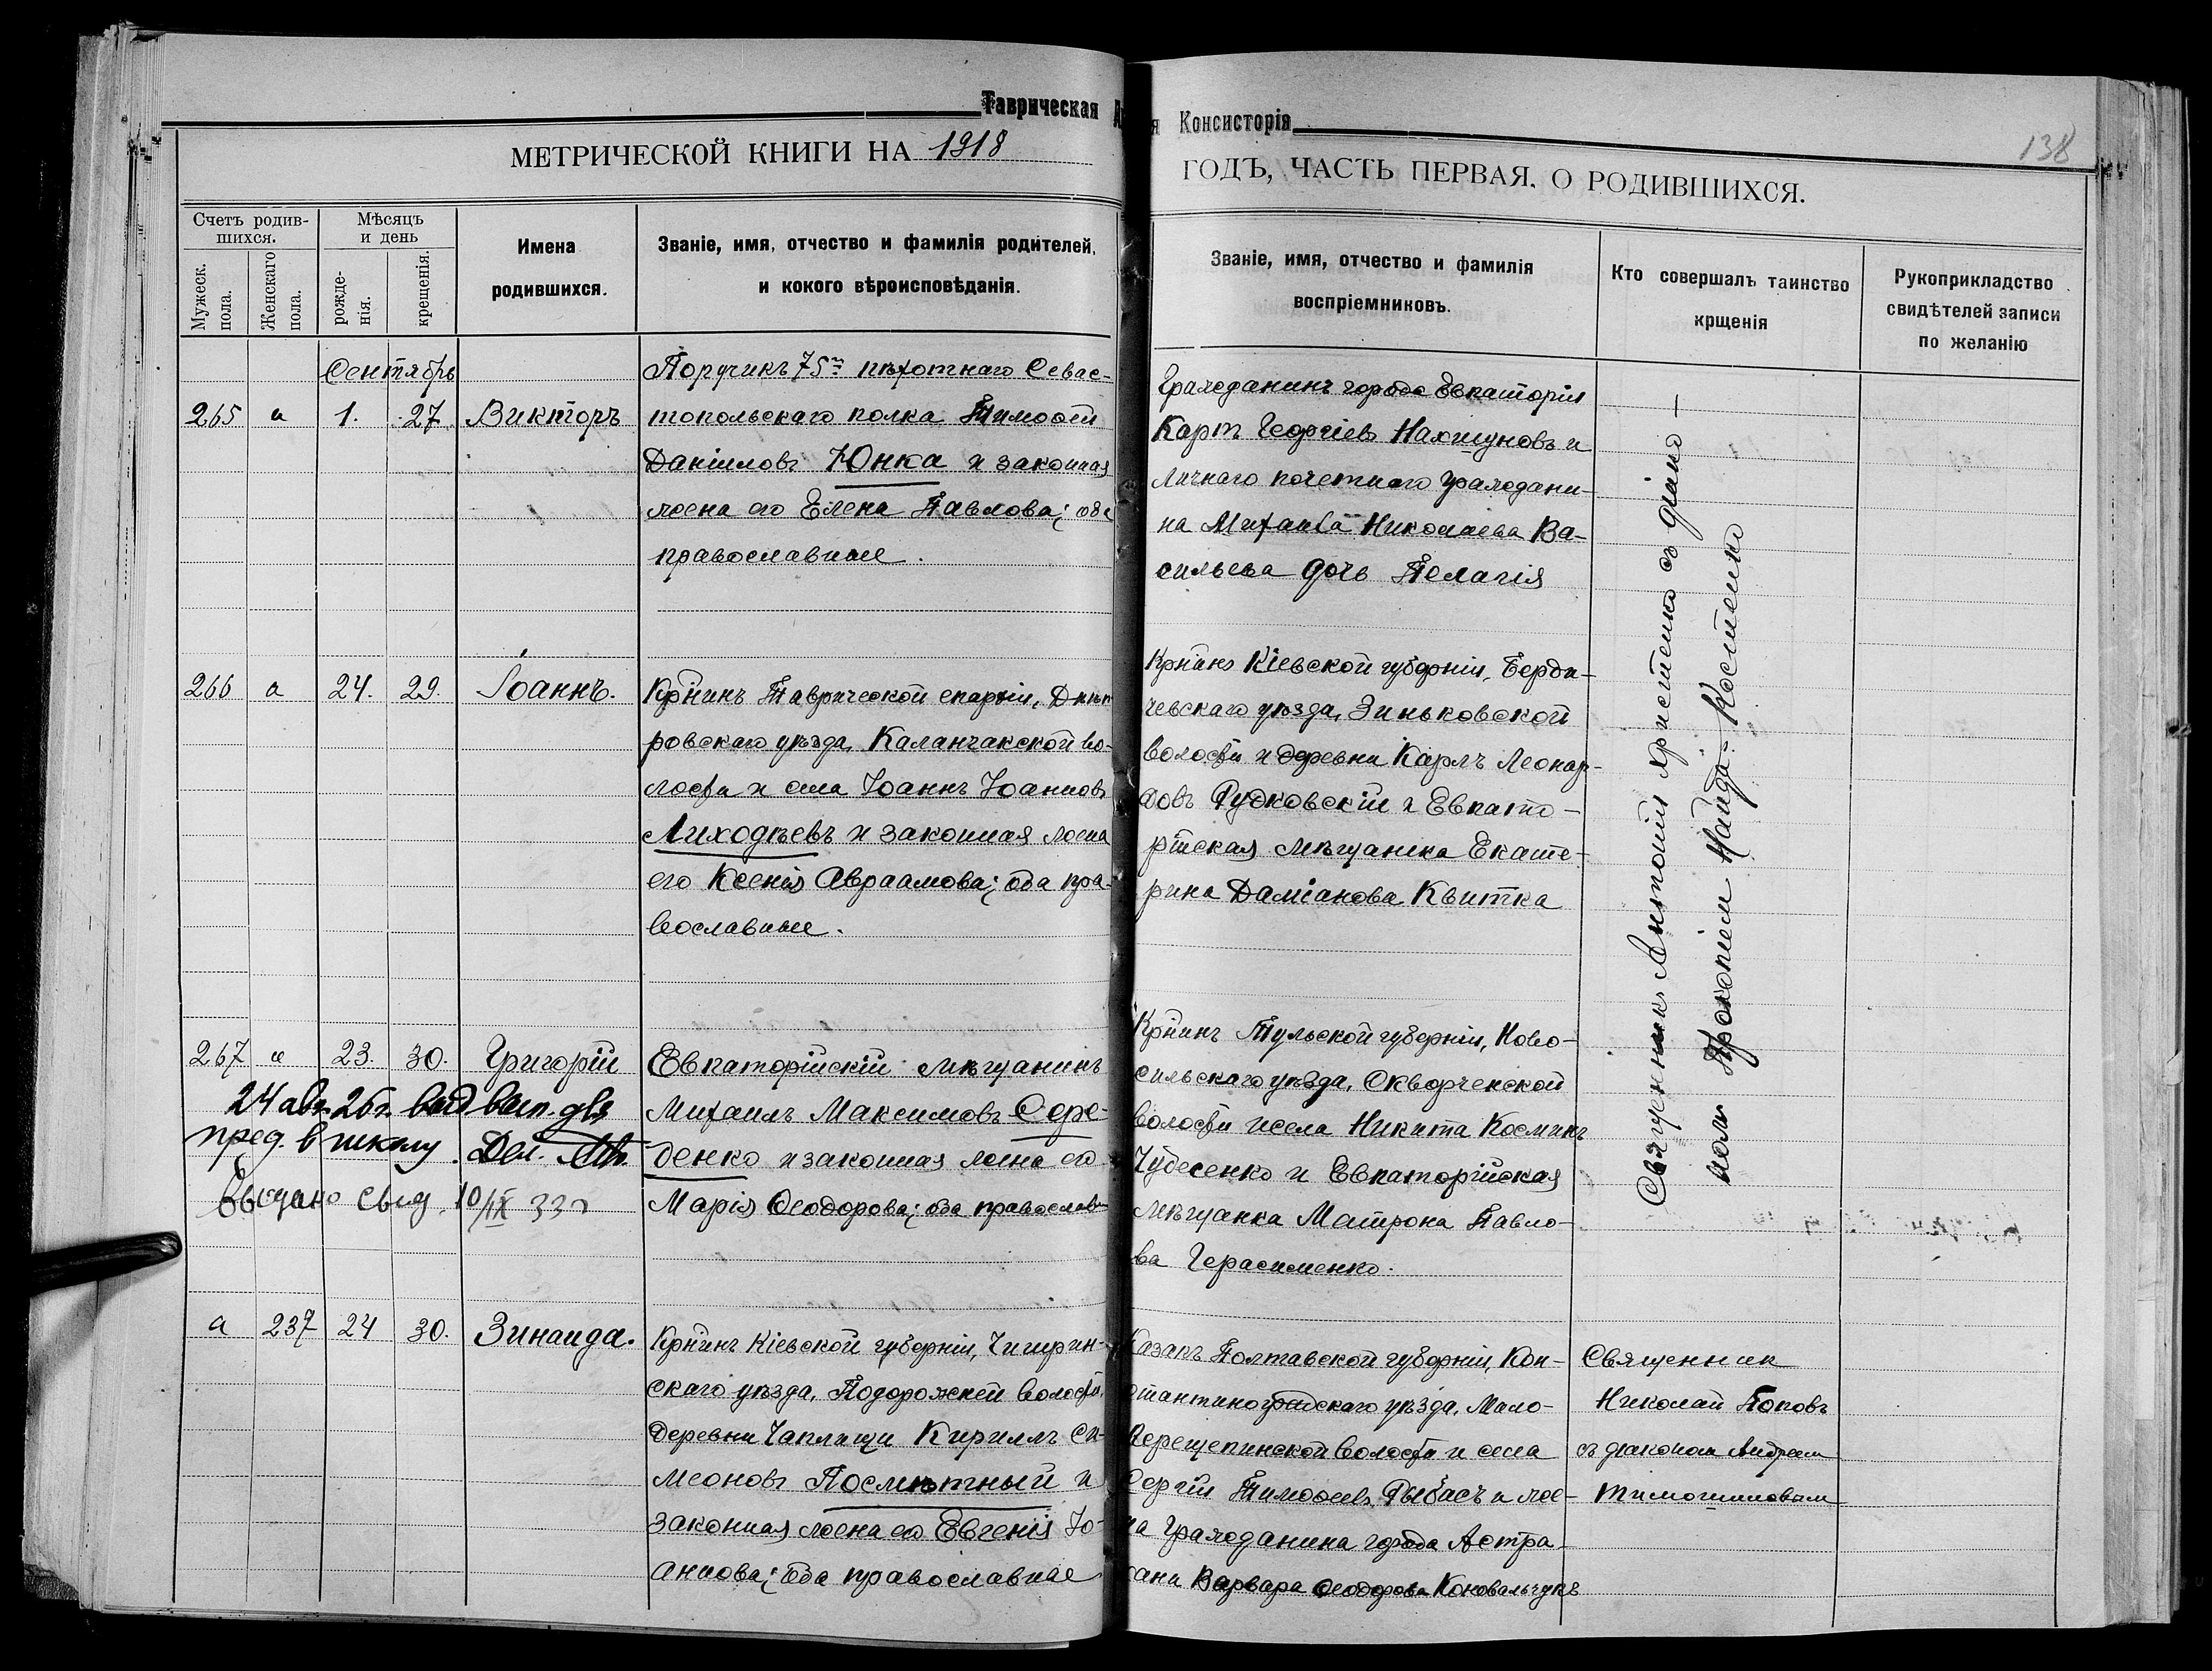 Таврическая
Консисторія
138
МЕТРИЧЕСКОЙ КНИГИ НА 1918
ГОДЪ, ЧАСТЬ ПЕРВАЯ. О РОДИВШИХСЯ.
Счетъ родив-
шихся.
Мужеск.
пола.
Женскаго
пола.
Мѣсяцъ
и день
рожде-
нія.
крещенія.
Имена
родившихся.
Званіе, имя, отчество и фамилія родителей,
и кокого вѣроисповѣданія.
Званіе, имя, отчество и фамилія
воспріемниковъ.
Кто совершалъ таинство
крщенія
Рукоприкладство
свидѣтелей записи
по желанію
Сентябрь
265 а 1. 27 Викторъ
Поручикъ 75го пѣхотнаго Севас-
топольскаго полка Тимоѳей
Даніиловъ Юнка и законная
жена его Елена Павлова; оба
православные.
Гражданинъ города Евпаторіи
Карпъ Георгіевъ Нахшуновъ и
личнаго почетнаго граждани-
на Михаила Николаева Ва-
сильева дочь Пелагія
266 а 24. 29. Іоаннъ.
Крнинъ Таврической епархіи, Днѣп-
ровскаго уѣзда, Каланчакской во-
лости и села Іоаннъ Іоанновъ
Лиходѣевъ и законная жена
его Ксенія Авраамова; оба пра-
вославные.
Крнинъ Кіевской губерніи, Берди-
чевскаго уѣзда, Зиньковской
волости и деревни Карлъ Леонар-
довъ Рудковскій и Евпато-
рійская мѣщанка Екате-
рина Даміанова Квитка
Священникъ Антоній Христенко съ діако-
номъ Прокопіемъ Найда-Костенко
267 а 23. 30. Григорій
Евпаторійскій мѣщанинъ
Михаилъ Максимовъ Сере-
денко и законная жена его
Марія Ѳеодорова; оба православн
24 авг. 26г. выд вып. для
пред. в школу. Дел.
Выдано свид. 10/IX 33г
Крнинъ Тульской губерніи, Ново-
сильскаго уѣзда, Скворченской
волости и села Никита Косминъ
Чудесенко и Евпаторійская
мѣщанка Матрона Павло-
ва Герасименко.
а 237 24 30. Зинаида.
Крнинъ Кіевской губерніи, Чигирин-
скаго уѣзда, Подорожней волости,
деревни Чаплищи Кириллъ Си-
меоновъ Посмѣтный и
законная жена его Евгенія Іо-
аннова; оба православные
Казакъ Полтавской губерніи, Кон-
стантиноградскаго уѣзда, Мало-
Перещепинской волости и села
Сергій Тимоѳеевъ Рыбасъ и же-
на гражданина города Астра-
хани Варвара Ѳеодорова Коновальчукъ
Священник
Николай Поповъ
съ діакономъ Андреем
Тимошиновым